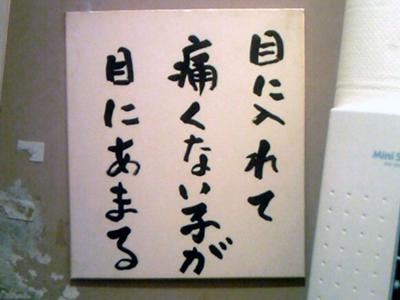 目に入れて
痛くない子が
目にあまる
Mini S